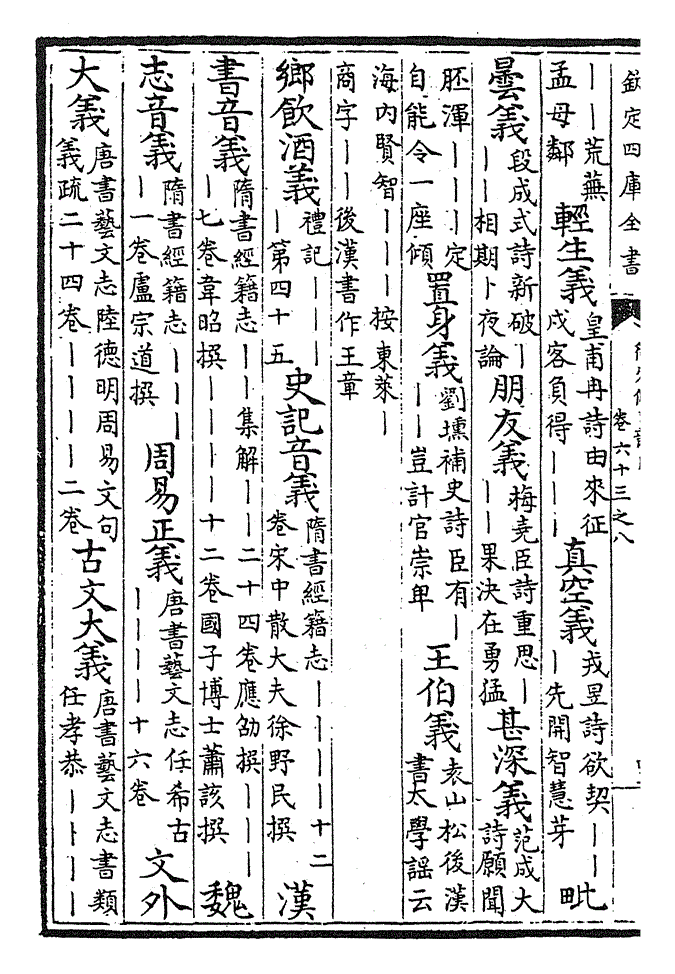 欽定四庫全書 卷六十三之八
——荒蕪孟母鄰 輕生義 皇甫冉詩由來征戍客負得——— 真空義 戎昱詩欲契———先開智慧芽 毗
曇義 段成式詩新破———相期卜夜論 朋友義 梅堯臣詩重思———果決在勇猛 甚深義 范成大詩願聞
胚渾———定自能令一座傾 置身義 劉壎補史詩臣有———豈計官崇卑 王伯義 袁山松後漢書太學謠云
海內賢智———按東萊—商字——後漢書作王章
鄉飲酒義 禮記————第四十五 史記音義 隋書經籍志————十二卷宋中散大夫徐野民撰 漢
書音義 隋書經籍志——集解——二十四卷應劭撰————七卷韋昭撰————十二卷國子博士蕭該撰 魏
志音義 隋書經籍志————一卷盧宗道撰 周易正義 唐書藝文志任希古————十六卷 文外
大義 唐書藝文志陸德明周易文句義疏二十四卷————二卷 古文大義 唐書藝文志書類任孝恭————